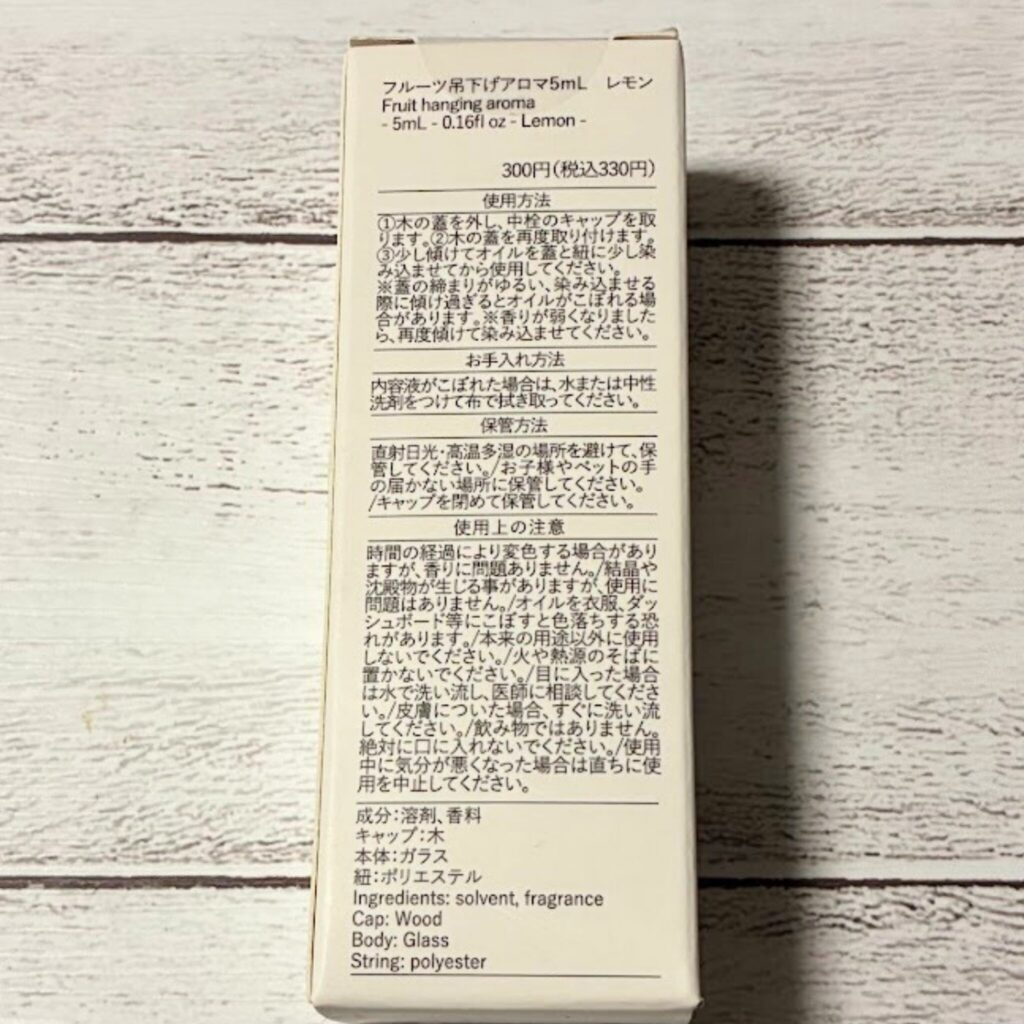 フルーツ吊下げアロマ5mL　レモン
Fruit hanging aroma
- 5mL - 0.16fl oz - Lemon -
300円(税込330円)
使用方法
①木の蓋を外し、中栓のキャップを取
ります。②木の蓋を再度取り付けます。
③少し傾けてオイルを蓋と紐に少し染
み込ませてから使用してください。
※蓋の締まりがゆるい、染み込ませる
際に傾け過ぎるとオイルがこぼれる場
合があります。※香りが弱くなりました
ら、再度傾けて染み込ませてください。
お手入れ方法
内容液がこぼれた場合は、水または中性
洗剤をつけて布で拭き取ってください。
保管方法
直射日光・高温多湿の場所を避けて、保
管してください。/お子様やペットの手
の届かない場所に保管してください。
/キャップを閉めて保管してください。
使用上の注意
時間の経過により変色する場合があり
ますが、香りに問題ありません。/結晶や
沈殿物が生じる事がありますが、使用に
問題はありません。/オイルを衣服、ダッ
シュボード等にこぼすと色落ちする恐
れがあります。/本来の用途以外に使用
しないでください。/火や熱源のそばに
置かないでください。/目に入った場合
は水で洗い流し、医師に相談してくださ
い。/皮膚についた場合、すぐに洗い流
してください。/飲み物ではありません。
絶対に口に入れないでください。/使用
中に気分が悪くなった場合は直ちに使
用を中止してください。
成分:溶剤、香料
キャップ:木
本体:ガラス
紐:ポリエステル
Ingredients: solvent, fragrance
Cap: Wood
Body: Glass
String: polyester